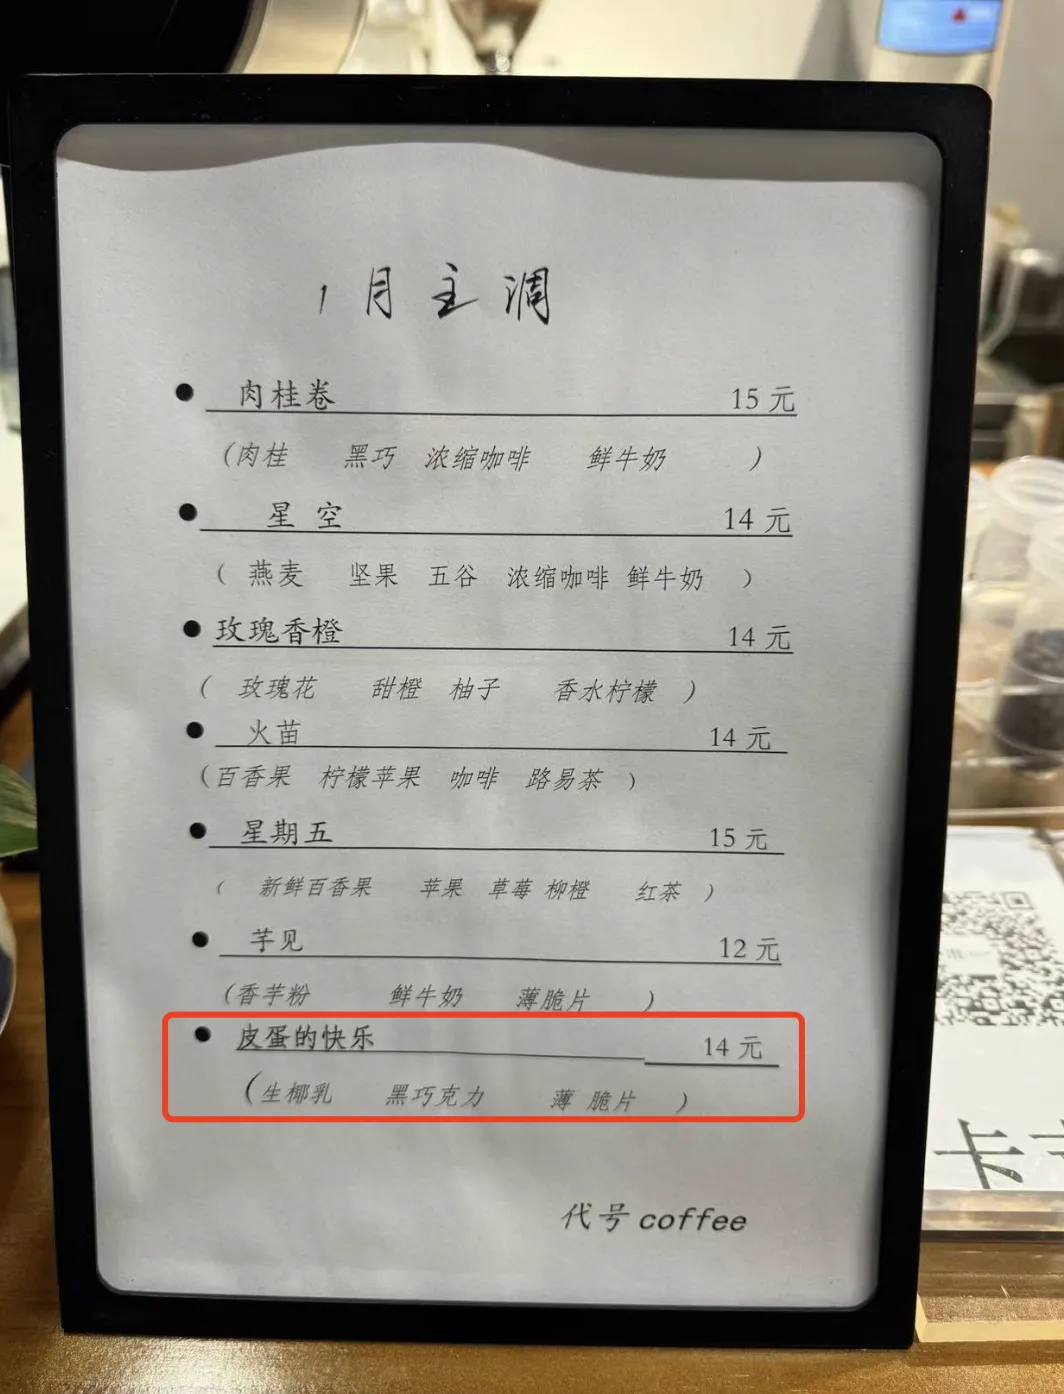 1月主调
● 肉桂卷 15元
(肉桂 黑巧 浓缩咖啡 鲜牛奶 )
● 星 空 14元
( 燕麦 坚果 五谷 浓缩咖啡 鲜牛奶 )
● 玫瑰香橙 14元
( 玫瑰花 甜橙 柚子 香水柠檬 )
● 火苗 14元
(百香果 柠檬苹果 咖啡 路易茶 )
● 星期五 15元
( 新鲜百香果 苹果 草莓 柳橙 红茶 )
● 芋见 12元
(香芋粉 鲜牛奶 薄脆片 )
● 皮蛋的快乐 14元
(生椰乳 黑巧克力 薄 脆片 )
代号coffee